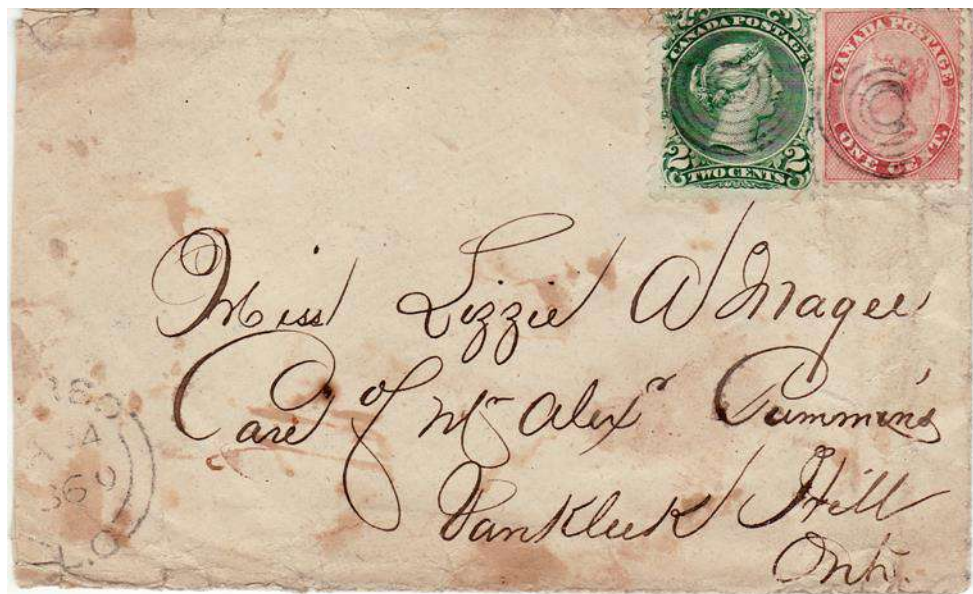 CANADA POSTAGE
2 2
TWO CENTS
CANADA POSTAGE
ONE CENT.
Miss Lizzie A Magee
Care of Mr Alexr Cummins
VanKleek Hill
Ont.